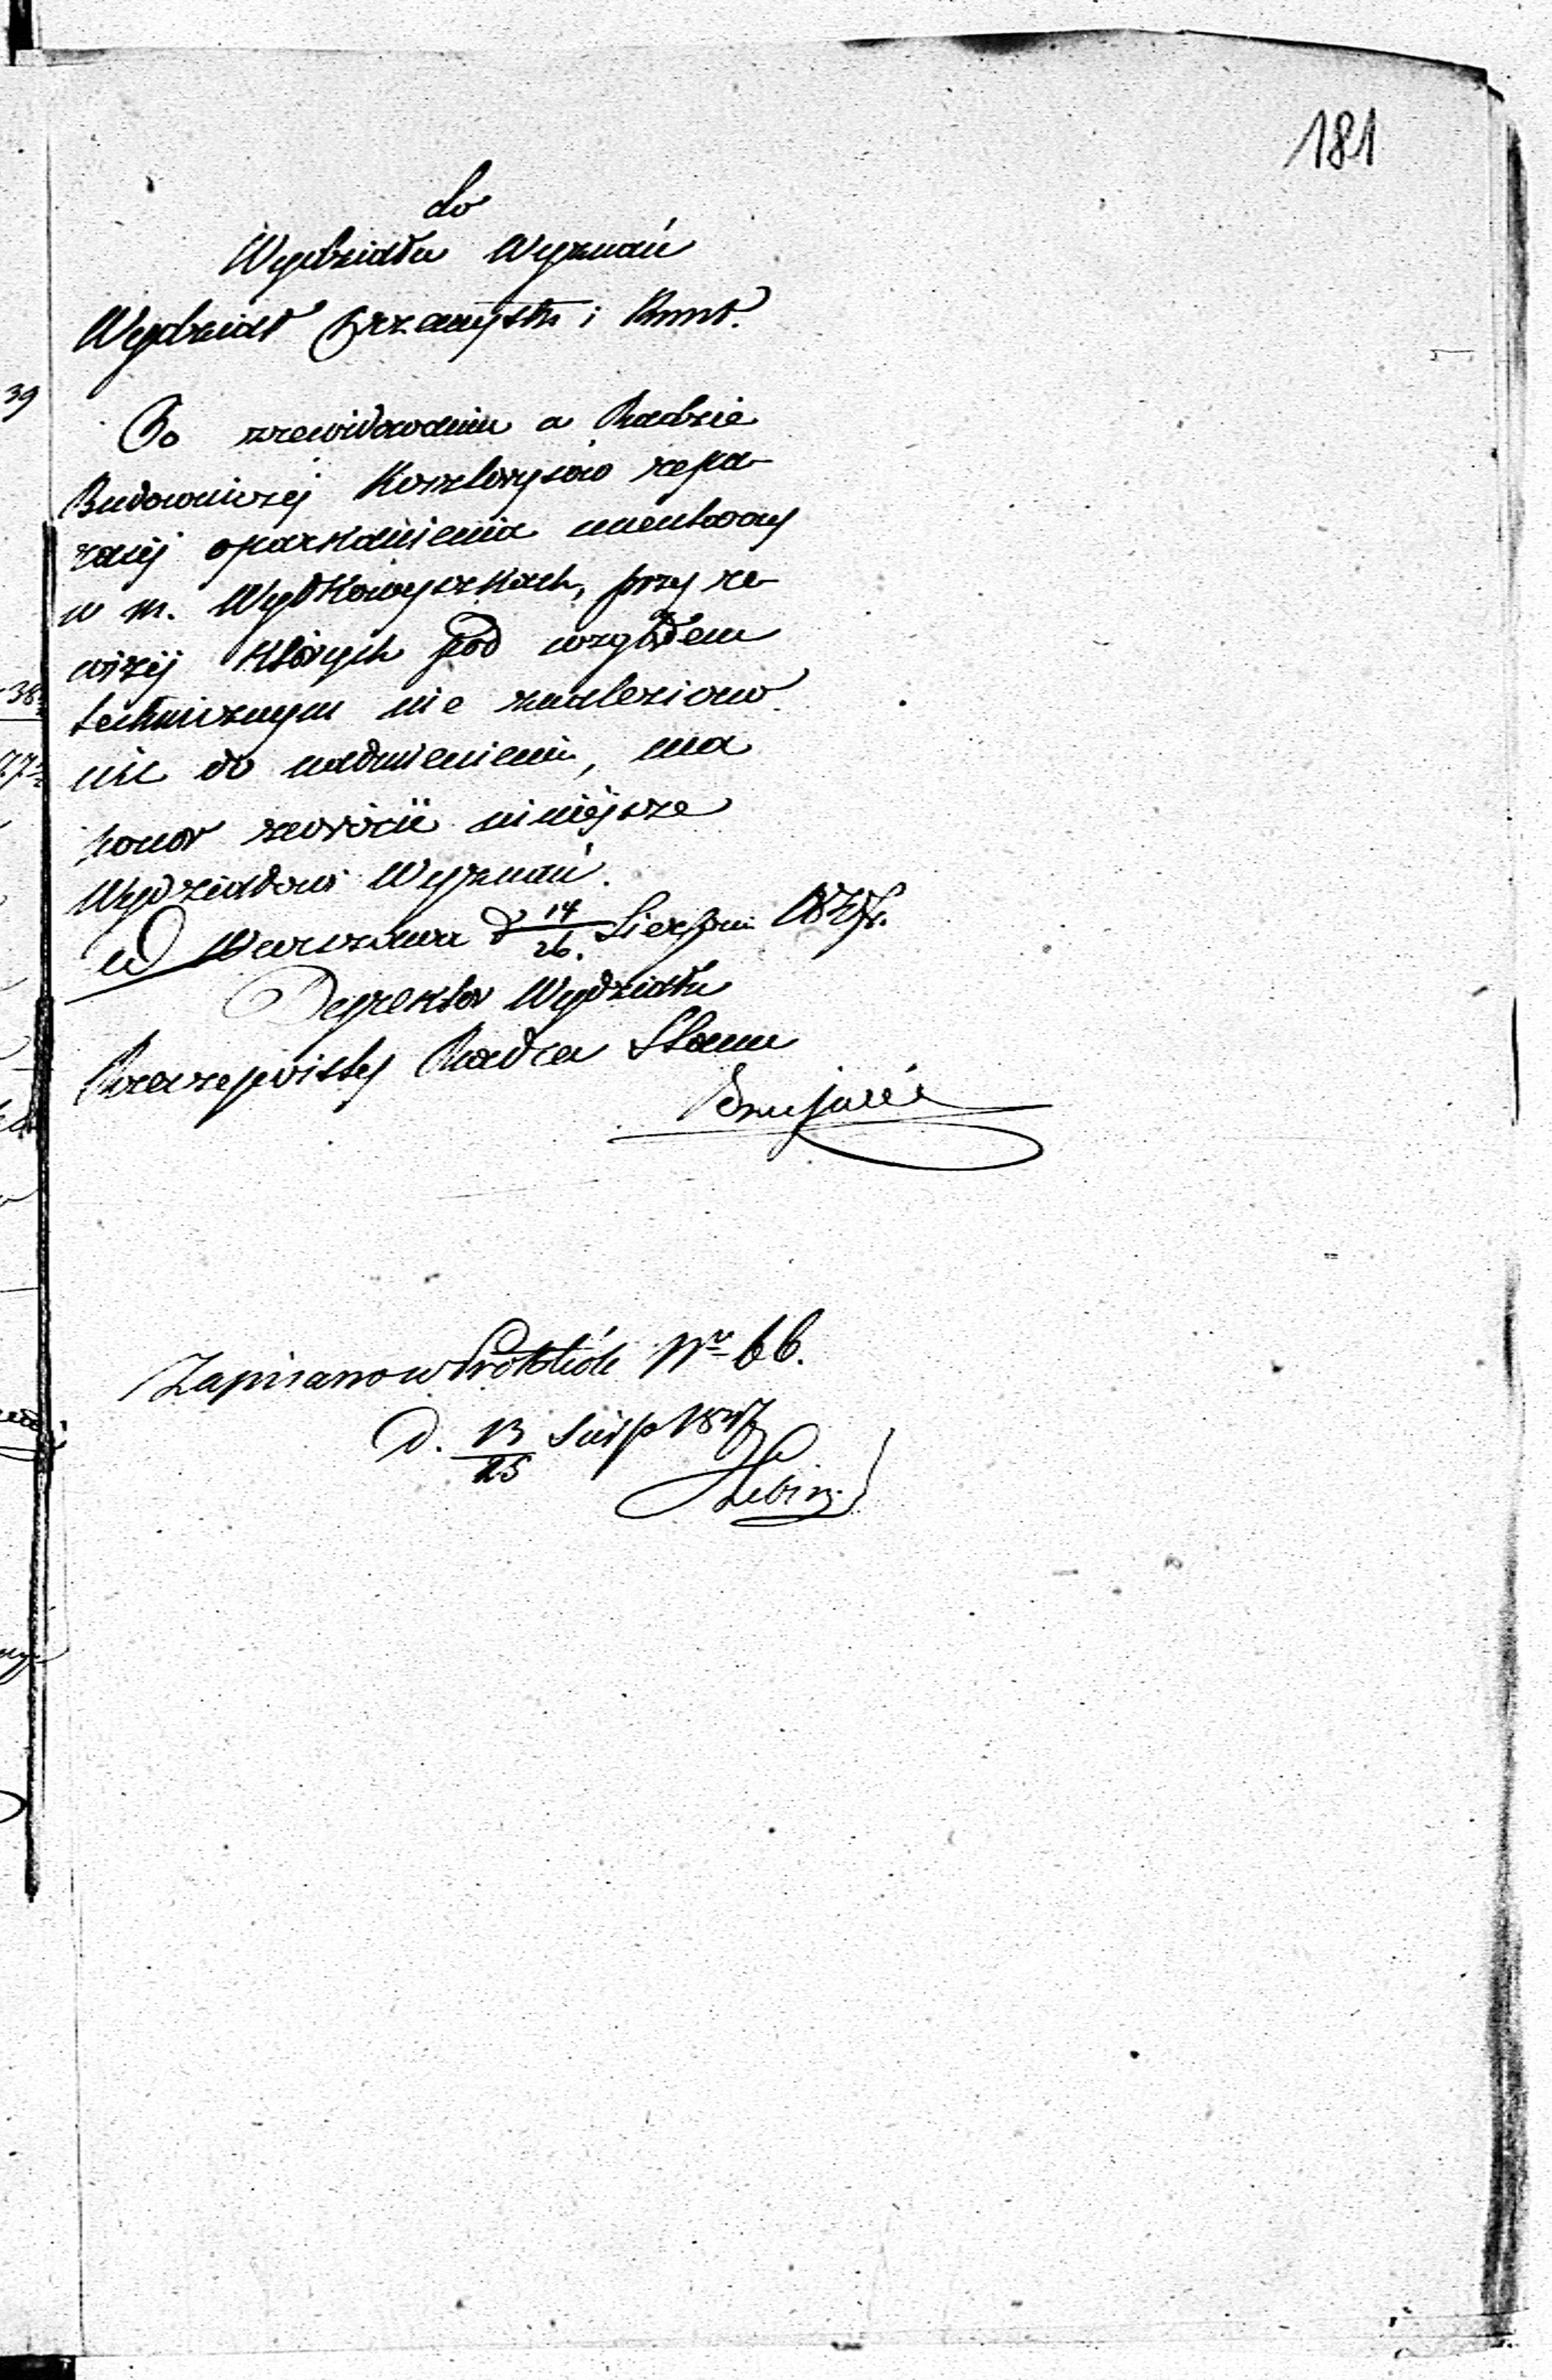 181
do
Wydziału Wyznań
Wydział Przemysłu i Kunst.
Po zrewidowaniu w Radzie
Budowniczej Kosztorysów repa-
racij oparkanienia cmentarzy
w m. Wyłkowyszkach, przy re-
wizij których pod względem
technicznym nie znaleziono
nic do nadmienienia, ma
honor zwrócić niniejsze
Wydziałowi Wyznań.
w Warszawie d 14/26. Sierpnia 1847r.
Dyrektor Wydziału
Rzeczywisty Radca Stanu
Zapisano w Protokóle Nr 66.
d. 13/25 Sierp 1847